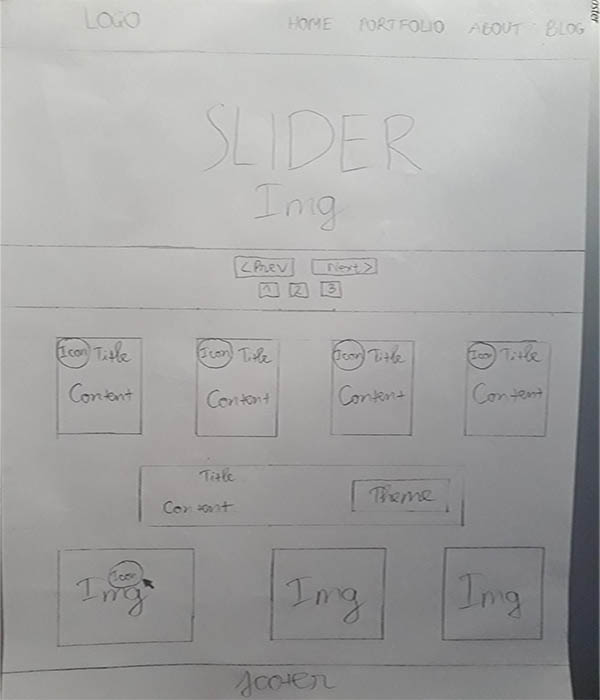 LOGO HOME PORTFOLIO ABOUT BLOG
SLIDER
Img
<Prev Next>
1 2 3
Icon Title Icon Title Icon Title Icon Title
Content Content Content Content
Title
Content Theme
Icon
Img Img Img
footer